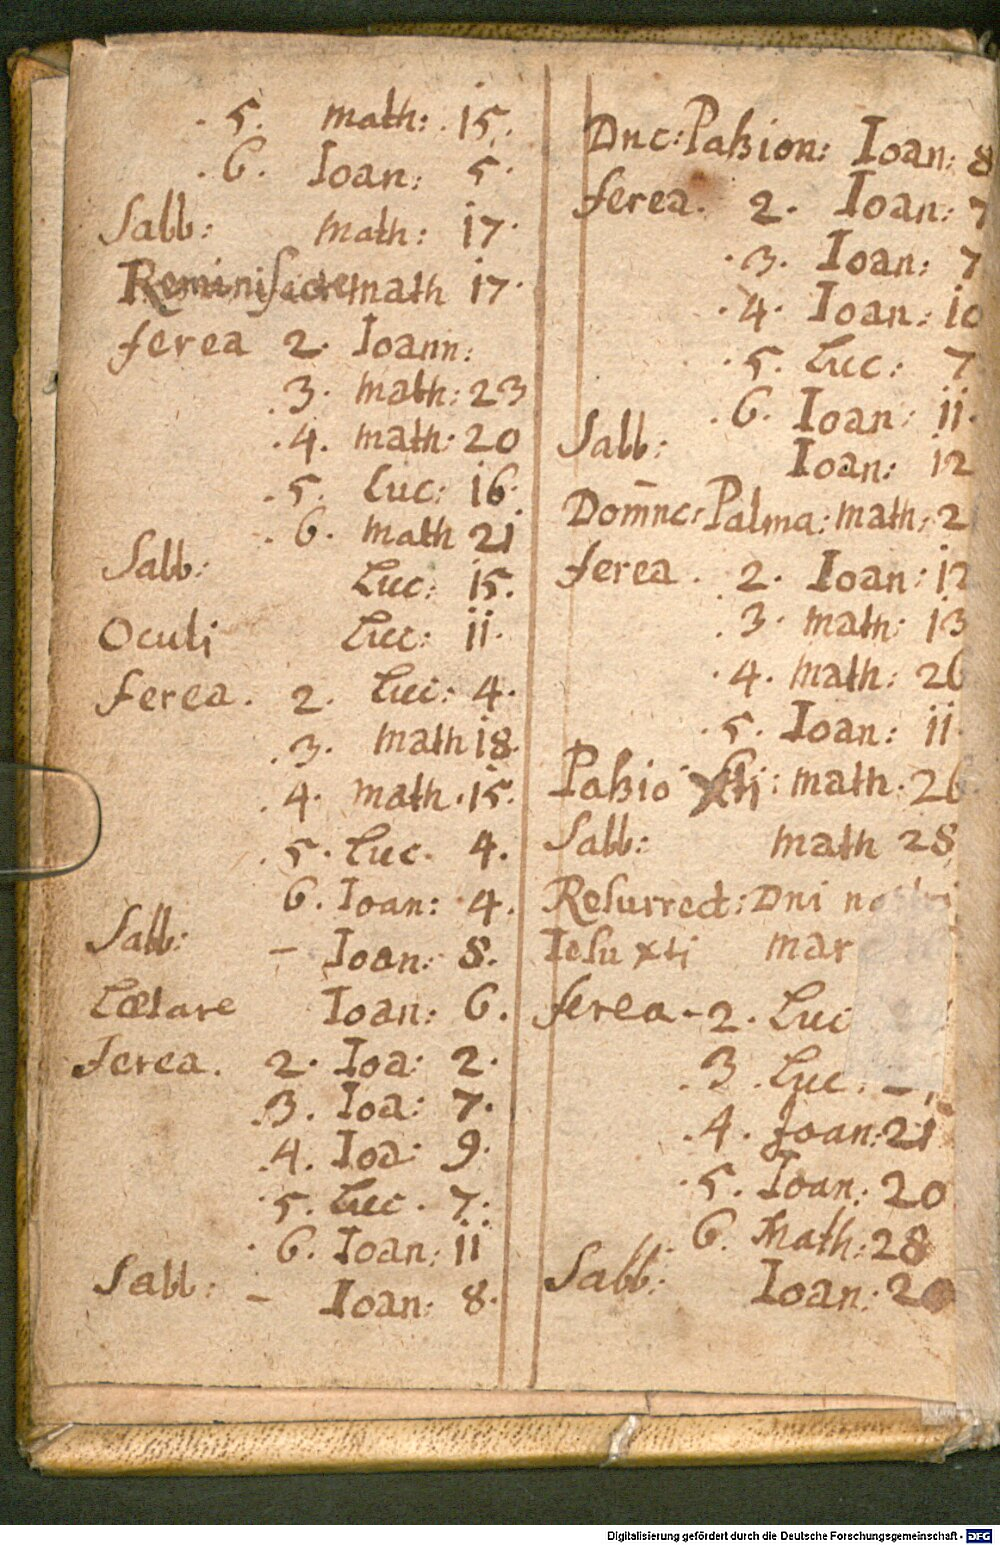 . 5. math: . 15.
. 6. Ioan: 5.
Sabb: math: 17.
Reminiscere math 17.
ferea 2. Ioann:
. 3. math: 23
. 4. math: 20
. 5. Luc: 16.
. 6. math 21
Sabb: Luc: 15.
Oculi Luc: ii.
ferea. 2. Luc: 4.
. 3. math i8.
. 4. math. 15.
. 5. Luc. 4.
6. Ioan: 4.
Sabb: – Ioan: 8.
Lætare Ioan: 6.
ferea. 2. Ioa: 2.
. 3. Ioa: 7.
. 4. Ioa: 9.
. 5. Luc. 7.
. 6. Ioan: ii
Sabb: – Ioan: 8.
Dnc: Paßion: Ioan: 8
ferea. 2. Ioan: 7
. 3. Ioan: 7
. 4. Ioan: 10
. 5. Luc: 7
. 6. Ioan: ii.
Sabb: Ioan: 12
Dom̄nc: Palma: math: 2
ferea. 2. Ioan: 12
. 3. math: 13
. 4. math: 26
. 5. Ioan: ii.
Paßio xti: math. 26
Sabb: math 28
Resurrect: Dni nostri
Iesu xti mar
ferea - 2. Luc
. 3. Luc:
. 4. Joan: 21
. 5. Ioan: 20
6. Math: 28
Sabb: Ioan: 20
Digitalisierung gefördert durch die Deutsche Forschungsgemeinschaft - DFG